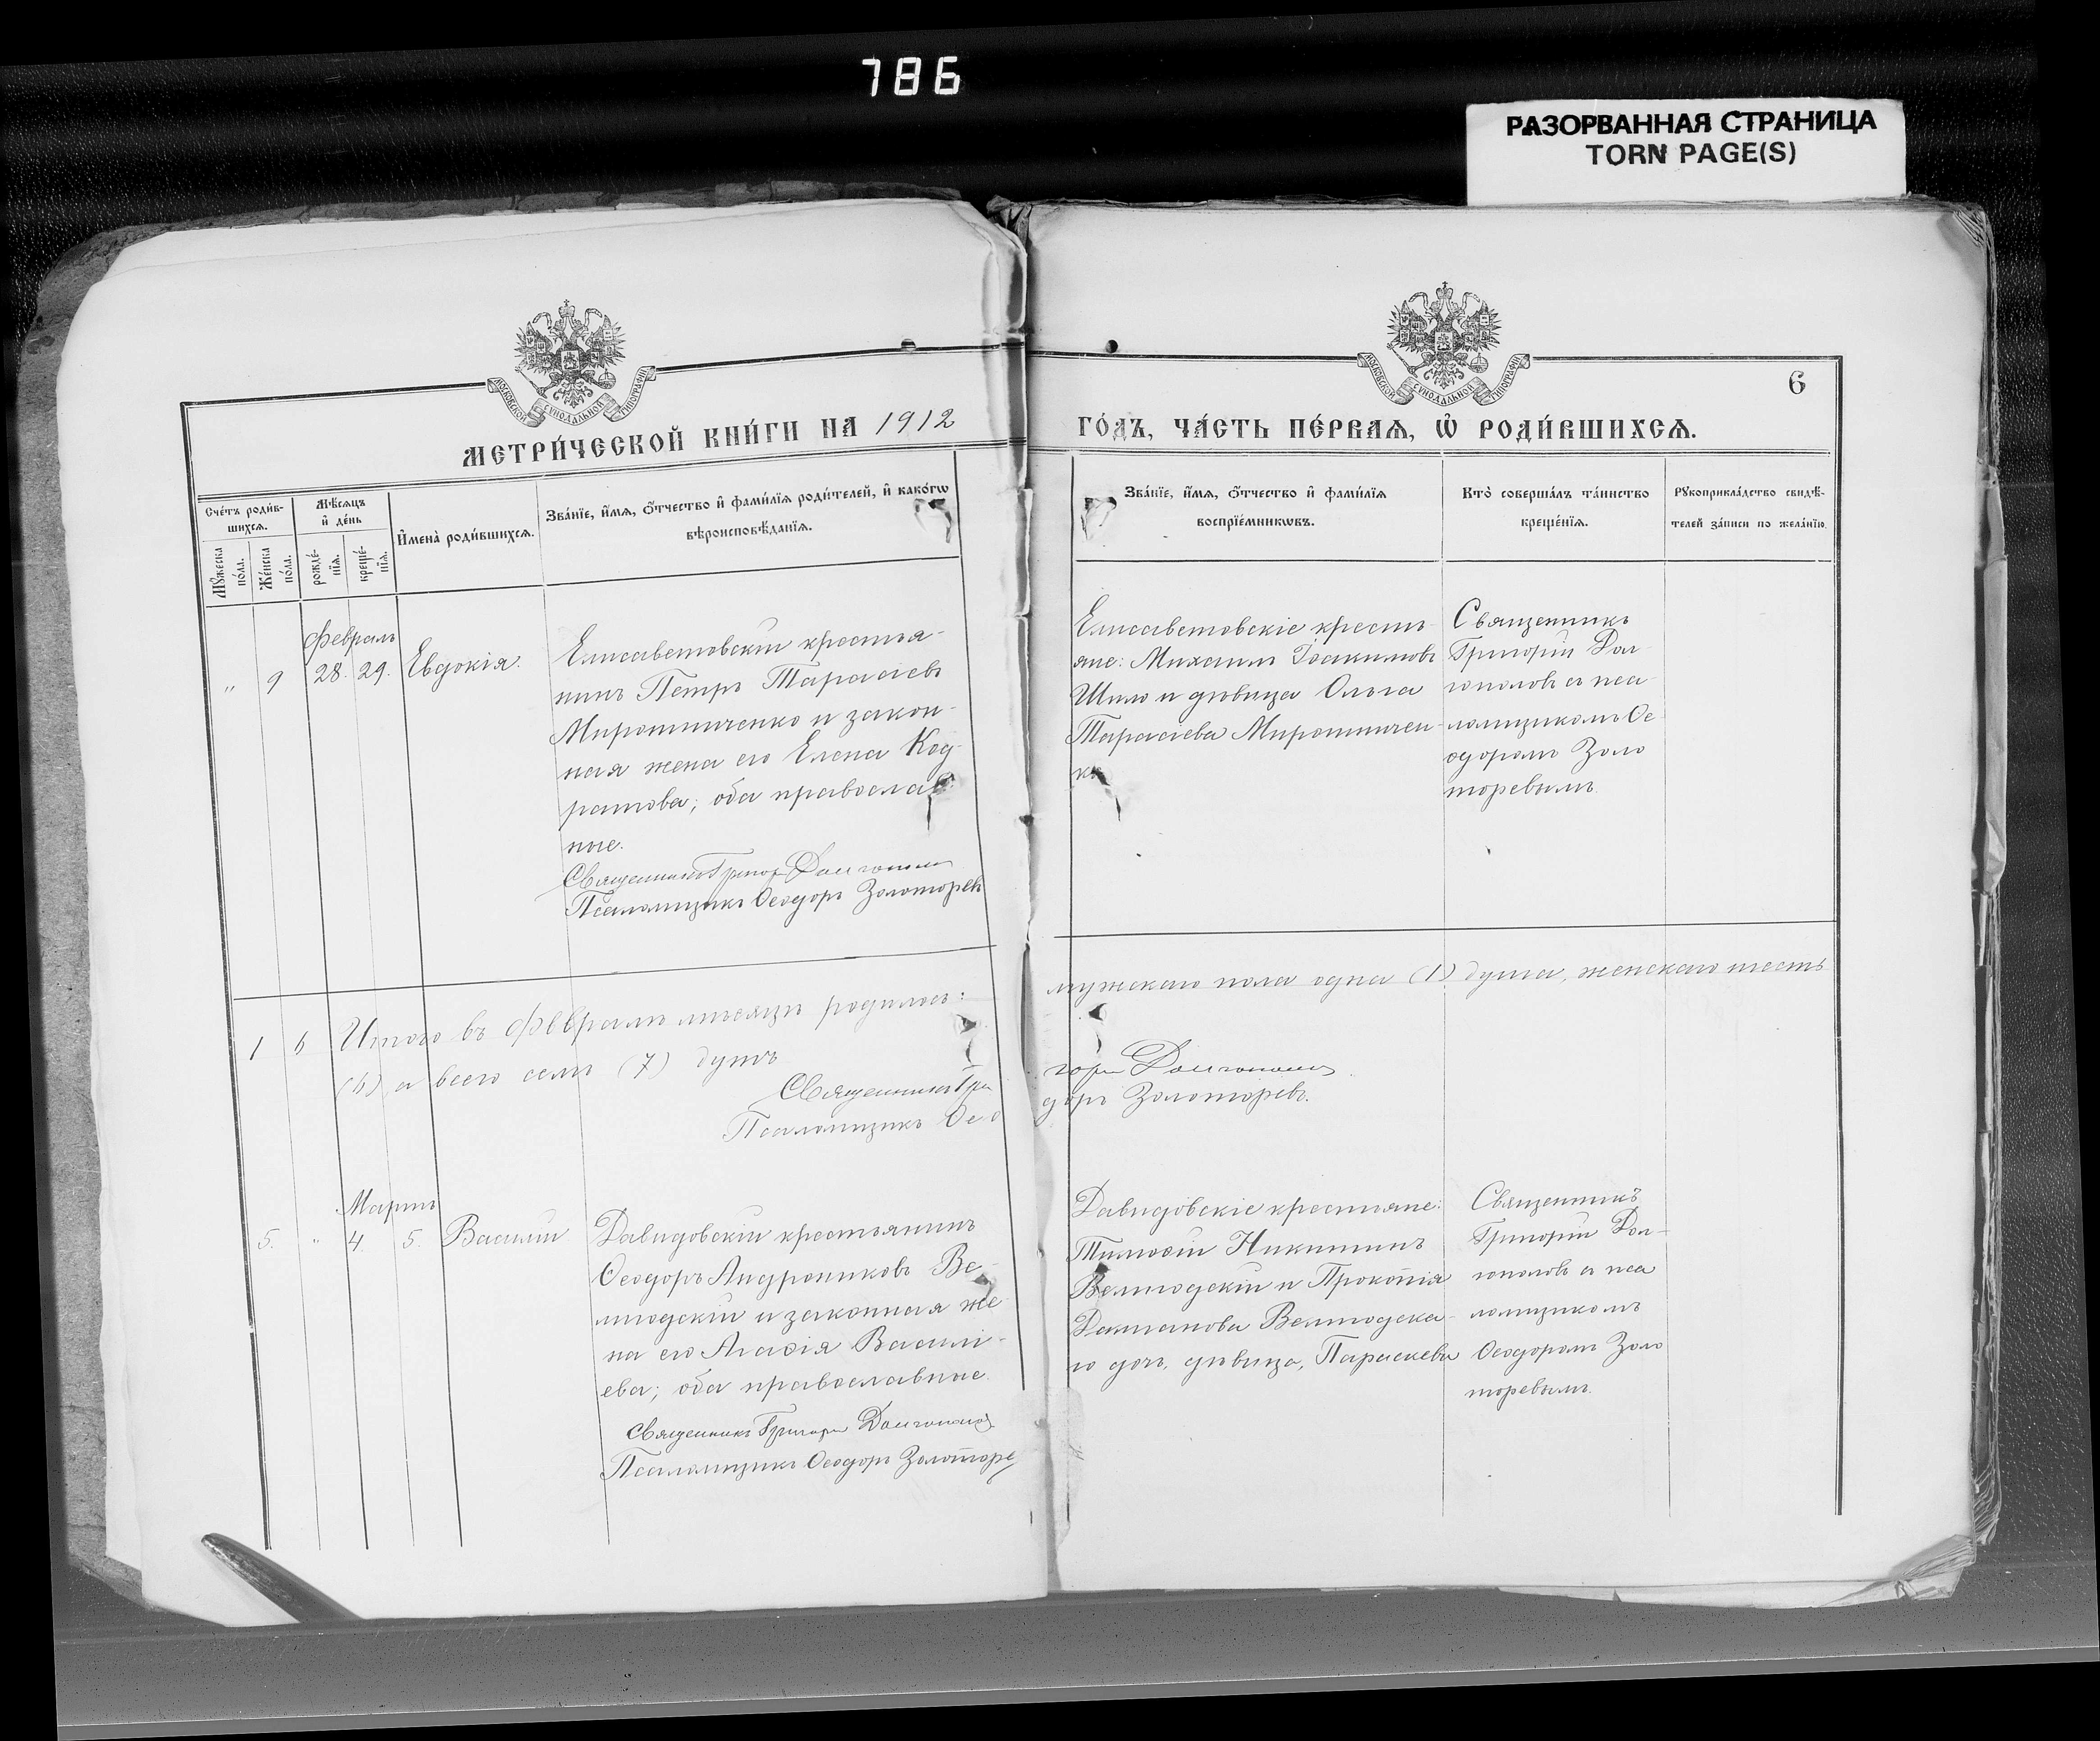 786
РАЗОРВАННАЯ СТРАНИЦА
TORN PAGE(S)
МОСКОВСКОЙ СУНОДАЛЬНОЙ ТИПОГРАФІИ
МОСКОВСКОЙ СУНОДАЛЬНОЙ ТИПОГРАФІИ
6
МЕТРИ́ЧЕСКОЙ КНИ́ГИ НА 1912
ГО́ДЪ, ЧА́СТЬ ПЕ́РВАѦ, Ѡ҆ РОДИ́ВШИХСѦ.
Сче́тъ роди́в-
шихсѧ.
Мꙋ́жеска
по́ла.
Же́нска
по́ла.
Мѣ́сѧцъ
и҆ де́нь
рожде́-
нїѧ.
креще́-
нїѧ.
И҆мена̀ роди́вшихсѧ.
Зва́нїе, и҆́мѧ, ѻ҆́тчество и҆ фами́лїѧ роди́телей, и҆ како́гѡ
вѣроисповѣ́данїѧ.
Зва́нїе, и҆́мѧ, ѻ҆́тчество и҆ фами́лїѧ
воспрїе́мникѡвъ.
Кто̀ соверша́лъ та́инство
креще́нїѧ.
Рꙋкоприкла́дство свидѣ́-
телей за́писи по жела́нїю.
Февраль
" 9 28. 29. Евдокія.
Елисаветовскій крестья-
нинъ Петръ Тарасіевъ
Мирошниченко и закон-
ная жена его Елена Код-
ратова; оба православ-
ные.
Священникъ Григор Долгополов
Псаломщикъ Ѳеодоръ Золоторевъ
Елисаветовскіе кресть-
яне: Михаилъ Іоакимовъ
Шило и дѣвица Ольга
Тарасіева Мирошничен-
ко
Священникъ
Григорій Дол-
гополовъ съ пса-
ломщикомъ Ѳе-
одоромъ Золо
торевымъ.
1 6 Итого въ Февралѣ мѣсяцѣ родилось:
мужскаго пола одна (1) душа, женскаго шесть
(6) а всего семь (7) душъ
Священникъ Гри
горій Долгополов
Псаломщикъ Ѳео
доръ Золоторевъ.
Мартъ
5. " 4. 5. Василій
Давидовскій крестьянинъ
Ѳеодоръ Андрониковъ Ве-
лигодскій и законная же-
на его Агаѳія Василі-
ева; оба православные.
Священникъ Григорій Долгополов
Псаломщикъ Ѳеодоръ Золоторе
Давидовскіе крестьяне:
Тимоѳій Никитинъ
Велигодскій и Прокопія
Велигодска-
го дочь, дѣвица, Параскева
Священникъ
Григорій Дол-
гополовъ съ пса
ломщикомъ
Ѳеодоромъ Золо
торевымъ.